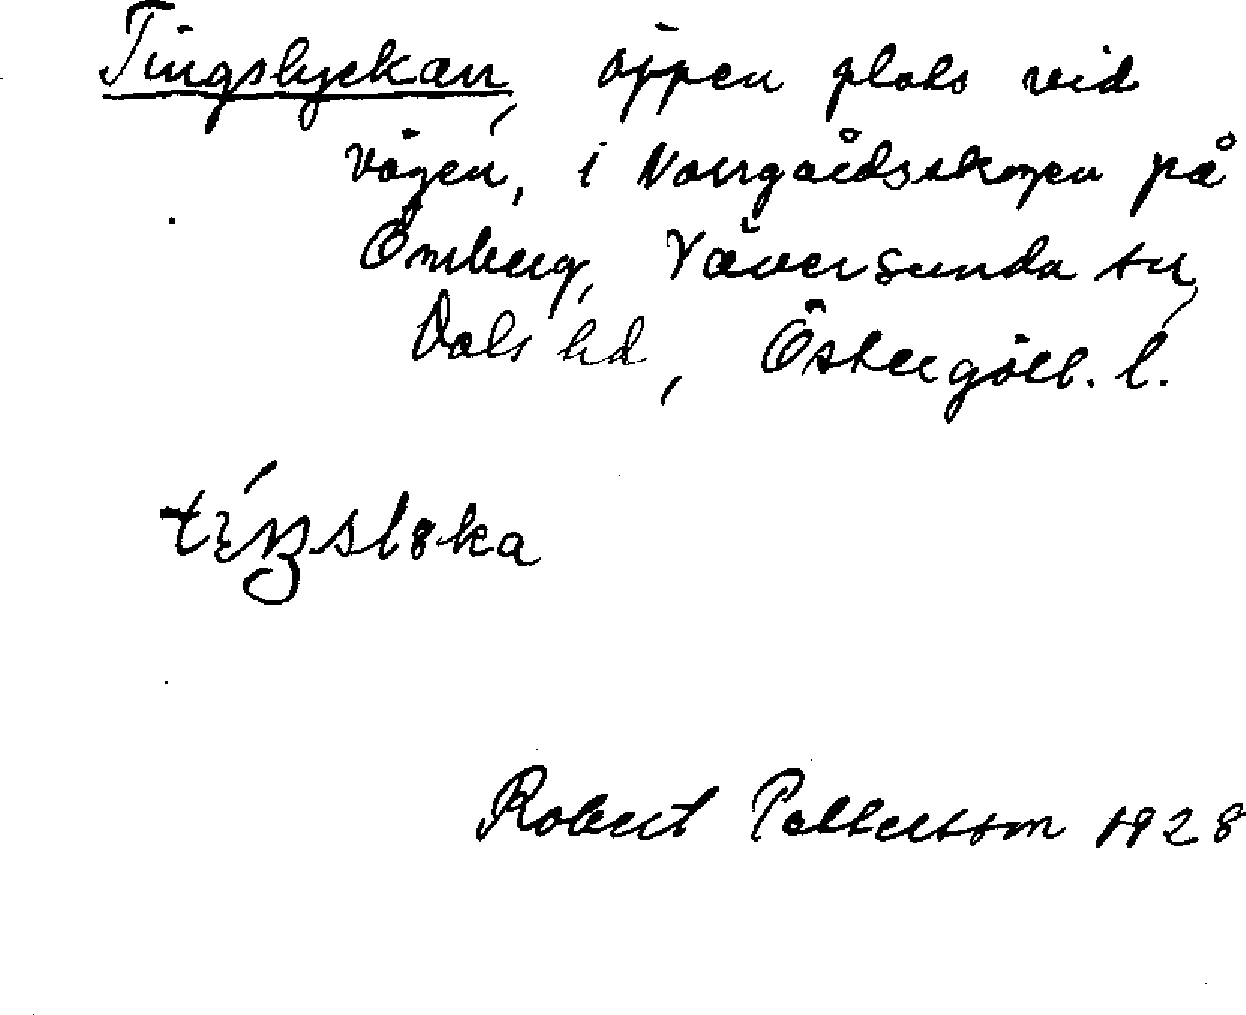 Tingslyckan, öppen plats vid
vägen, i Norrgårdsskogen på
Omberg, Väversunda sn,
Dals hd, Östergötl. l.
Robert Pettersson 1928